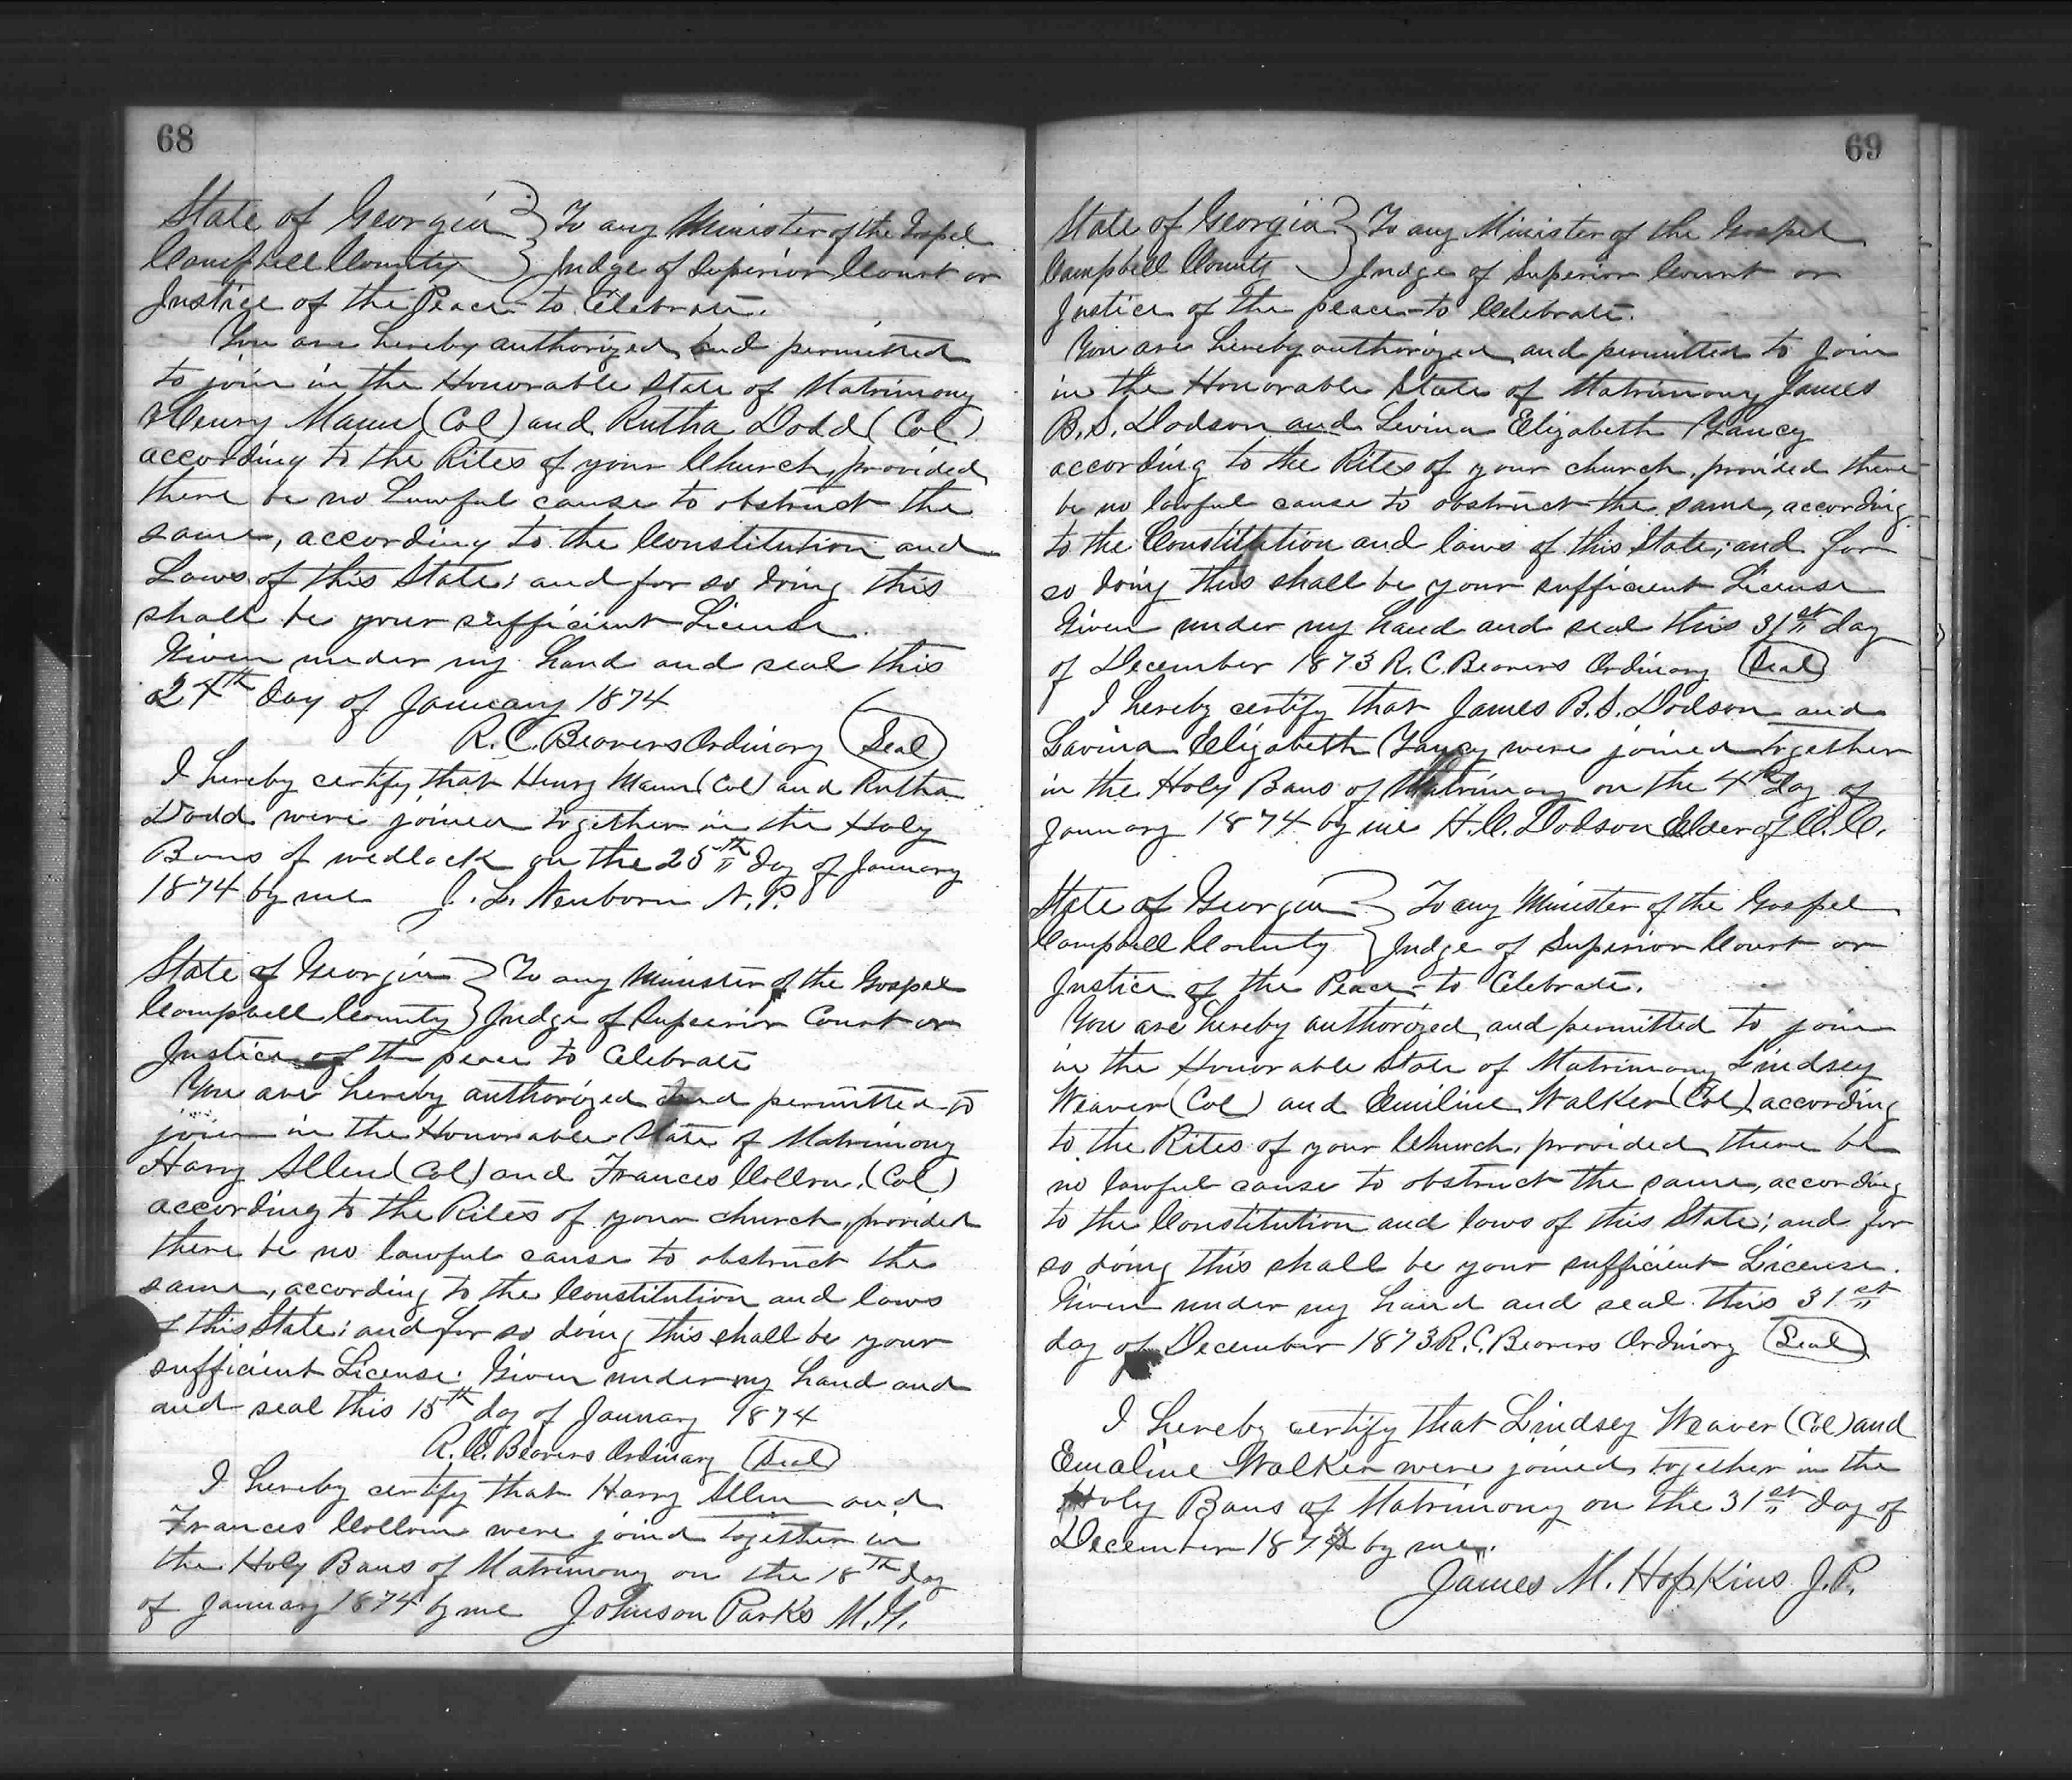 68
State of Georgia } To any Minister of the Gospel
Campbell County } Judge of Superior Court or
Justice of the Peace to Celebrate.
You are hereby authorized and permitted
to join in the Honorable State of Matrimony
Henry Mann (Col) and Rutha Dodd (Col)
according to the Rites of your Church, provided
there be no Lawful cause to obstruct the
same, according to the Constitution and
Laws of this State; and for so doing this
shall be your sufficient License.
Given under my hand and seal this
24th day of January 1874
R. C. Beavers Ordinary (Seal)
I hereby certify that Henry Mann (Col) and Rutha
Dodd were joined together in the Holy
Bans of wedlock on the 25th day of January
1874 by me J. L. Newborn N. P.
State of Georgia } To any Minister of the Gospel
Campbell County } Judge of Superior Court or
Justice of th peace to Celebrate
You are hereby authorized and permitted to
join in the Honorable State of Matrimony
Harry Allen (Col) and Frances (Col)
according to the Rites of your church, provided
there be no lawful cause to obstruct the
same, according to the Constitution and laws
of this State; and for so doing this shall be your
sufficient License. Given under my hand and
and seal this 15th day of January 1874
R. C. Beavers Ordinary (Seal)
I hereby certify that Harry Allen and
Frances were joind together in
the Holy Bans of Matrimony on the 18th day
of January 1874 by me Johnson Parks M. G.
69
State of Georgia } To any Minister of the Gospel
Campbell County } Judge of Superior Court or
Justice of the peace to Celebrate.
You are hereby authorized and permitted to join
in the Honorable State of Matrimony James
B. S. Dodson and Levina Elizabeth Yancy
according to the Rites of your church, provided there
be no lawful cause to obstruct the same, according
to the Constitution and laws of this State; and for
so doing this shall be your sufficient License
Given under my hand and seal this 31st day
of December 1873 R. C. Beavers Ordinary (Seal)
I hereby certify that James B. S. Dodson and
Lavina Elizabeth Yancy were joined together
in the Holy Bans of Matrimony on the 4th day of
January 1874 by me H. C. Dodson Elder of C. C.
State of Georgia } To any Minister of the Gospel
Campbell County } Judge of Superior Court or
Justice of the Peace to Celebrate.
You are hereby authorized, and permitted to join
in the Honorable State of Matrimony Lindsey
Weaver (Col) and Emiline Walker (Col) according
to the Rites of your Church, provided there be
no lawful cause to obstruct the same, according
to the Constitution and laws of this State; and for
so doing this shall be your sufficient License.
Given under my hand and seal this 31st
day of December 1873 R. C. Beavers Ordinary (Seal)
I hereby certify that Lindsey Weaver (Col) and
Emaline Walker were joined together in the
Holy Bans of Matrimony on the 31st day of
December by me.
James M. Hopkins J. P.